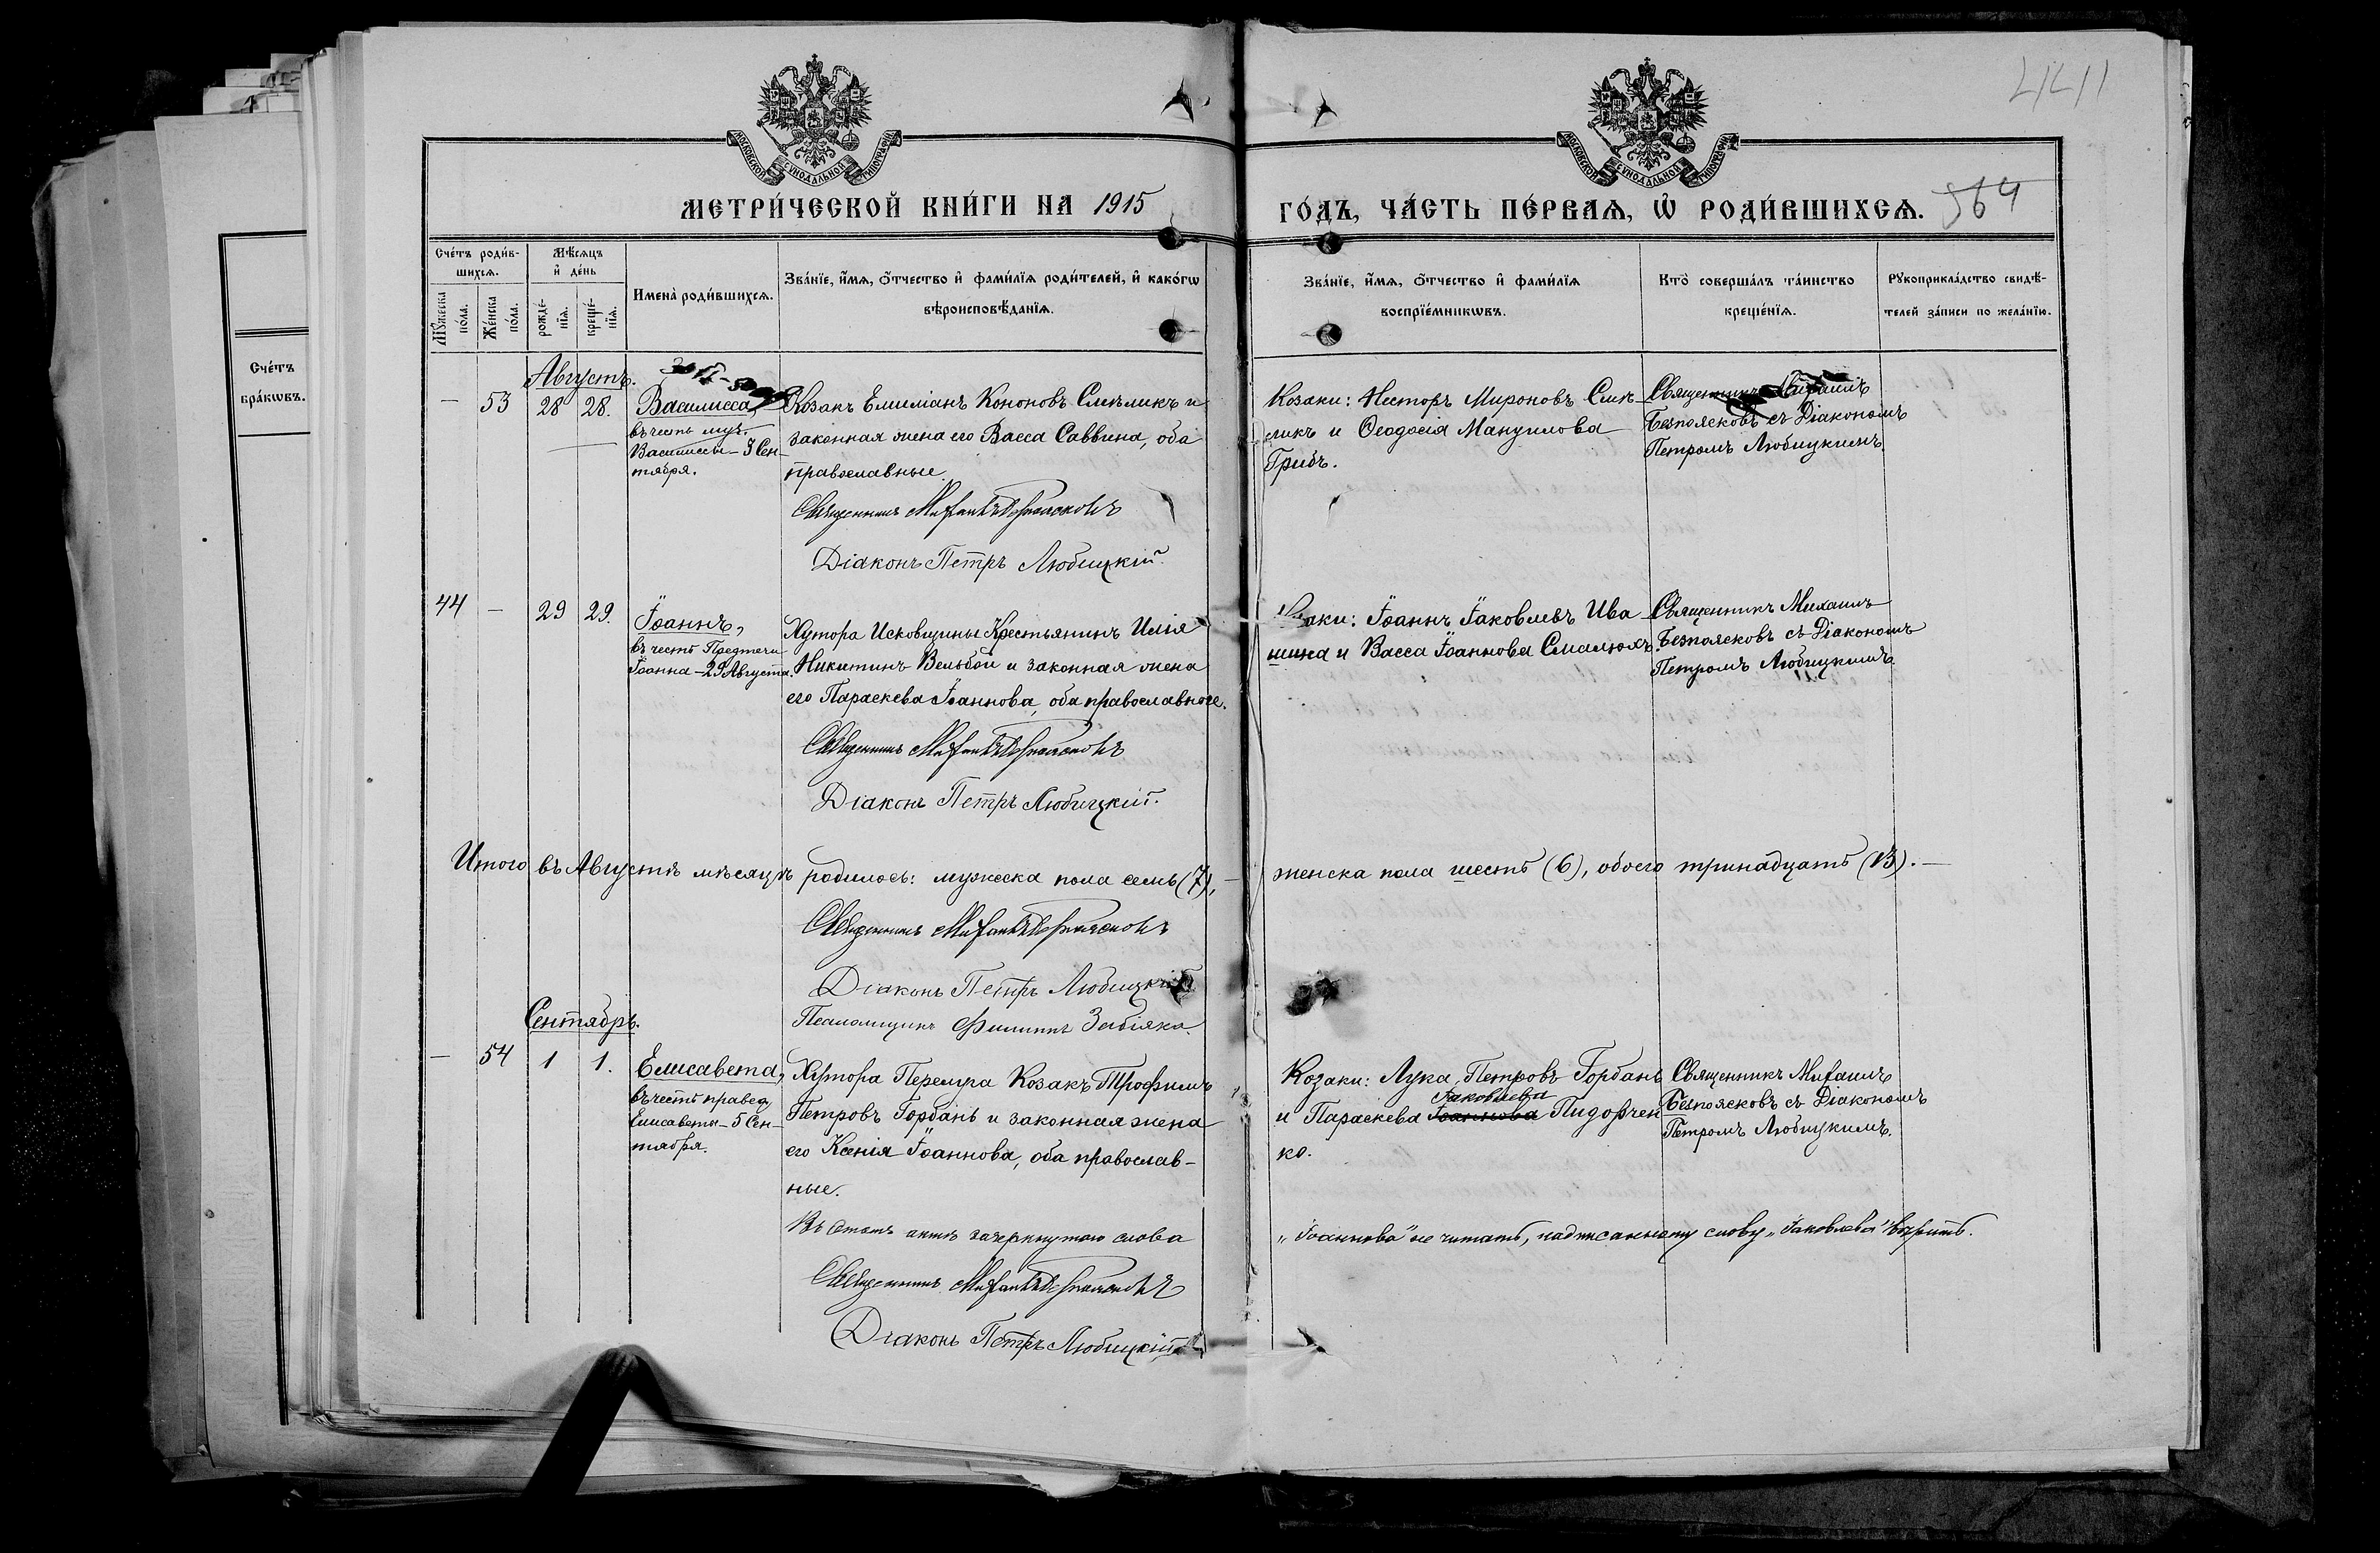 4411
МОСКОВСКОЙ СѴНОДАЛЬНОЙ ТИПОГРАФІИ
МОСКОВСКОЙ СѴНОДАЛЬНОЙ ТИПОГРАФІИ
МЕТРИ́ЧЕСКОЙ КНИ́ГИ НА 1915
ГО́ДЪ, ЧА́СТЬ ПЕ́РВАѦ, Ѡ҆ РОДИ́ВШИХСѦ. 564
Сче́тъ
бра́кѡвъ.
Сче́тъ роди́в-
шихсѧ.
Мѣ́сѧцъ
и҆ де́нь
Мꙋ́жеска по́ла.
Же́нска по́ла.
рожде́-
нїѧ.
креще́-
нїѧ.
Имена̀ роди́вшихсѧ.
Зва́нїе, и҆́мѧ, ѻ҆́тчество и҆ фами́лїѧ роди́телей, и҆ како́гѡ
вѣроисповѣ́данїѧ.
Зва́нїе, и҆́мѧ, ѻ҆́тчество и҆ фами́лїѧ
воспрїе́мникѡвъ.
Кто̀ соверша́лъ та́инство
креще́нїѧ.
Рꙋкоприкла́дство свидѣ́-
телей за́писи по жела́нїю.
Августъ.
— 53 28 28. Василисса,
въ честь муч.
Василиссы – 3 Сен-
тября.
Козакъ Емиліанъ Кононовъ Смѣликъ и
законная жена его Васса Саввина, оба
православные.
Священникъ Михаилъ Безпоясковъ
Діаконъ Петръ Любицкій.
Козаки: Несторъ Мироновъ Смѣ-
ликъ и Ѳеодосія Мануилова
Грибъ.
Священникъ Михаилъ
Безпоясковъ съ Діакономъ
Петромъ Любицкимъ.
44 — 29 29. Іоаннъ,
въ честь Предтечи
Іоанна – 29 Августа.
Хутора Исковщины Крестьянинъ Илія
Никитинъ Вельбой и законная жена
его Параскева Іоаннова, оба православные.
Священникъ Михаилъ Безпоясковъ
Діаконъ Петръ Любицкій.
Козаки: Іоаннъ Іаковлевъ Ива
шина и Васса Іоаннова Смалюхъ.
Священникъ Михаилъ
Безпоясковъ съ Діакономъ
Петромъ Любицкимъ.
Итого въ Августѣ мѣсяцѣ родилось: мужеска пола семь (7), — женска пола шесть (6), обоего тринадцать (13). —
Священникъ Михаилъ Безпоясковъ
Діаконъ Петръ Любицкій
Псаломщикъ Филиппъ Забіяка.
Сентябрь.
— 54 1 1. Елисавета,
въ честь правед.
Елисаветы – 5 Сен-
тября.
Хутора Перемра Козакъ Трофимъ
Петровъ Горбань и законная жена
его Ксенія Іоаннова, оба православ-
ные.
Козаки: Лука Петровъ Горбань
Іаковлева
и Параскева Іоаннова Пидорчен
ко.
Священникъ Михаилъ
Безпоясковъ съ Діакономъ
Петромъ Любицкимъ.
Въ этомъ актѣ зачеркнутаго слова „Іоаннова" не читать, надписанному слову „Іаковлева" вѣрить.
Священникъ Михаилъ Безпоясковъ
Діаконъ Петръ Любицкій